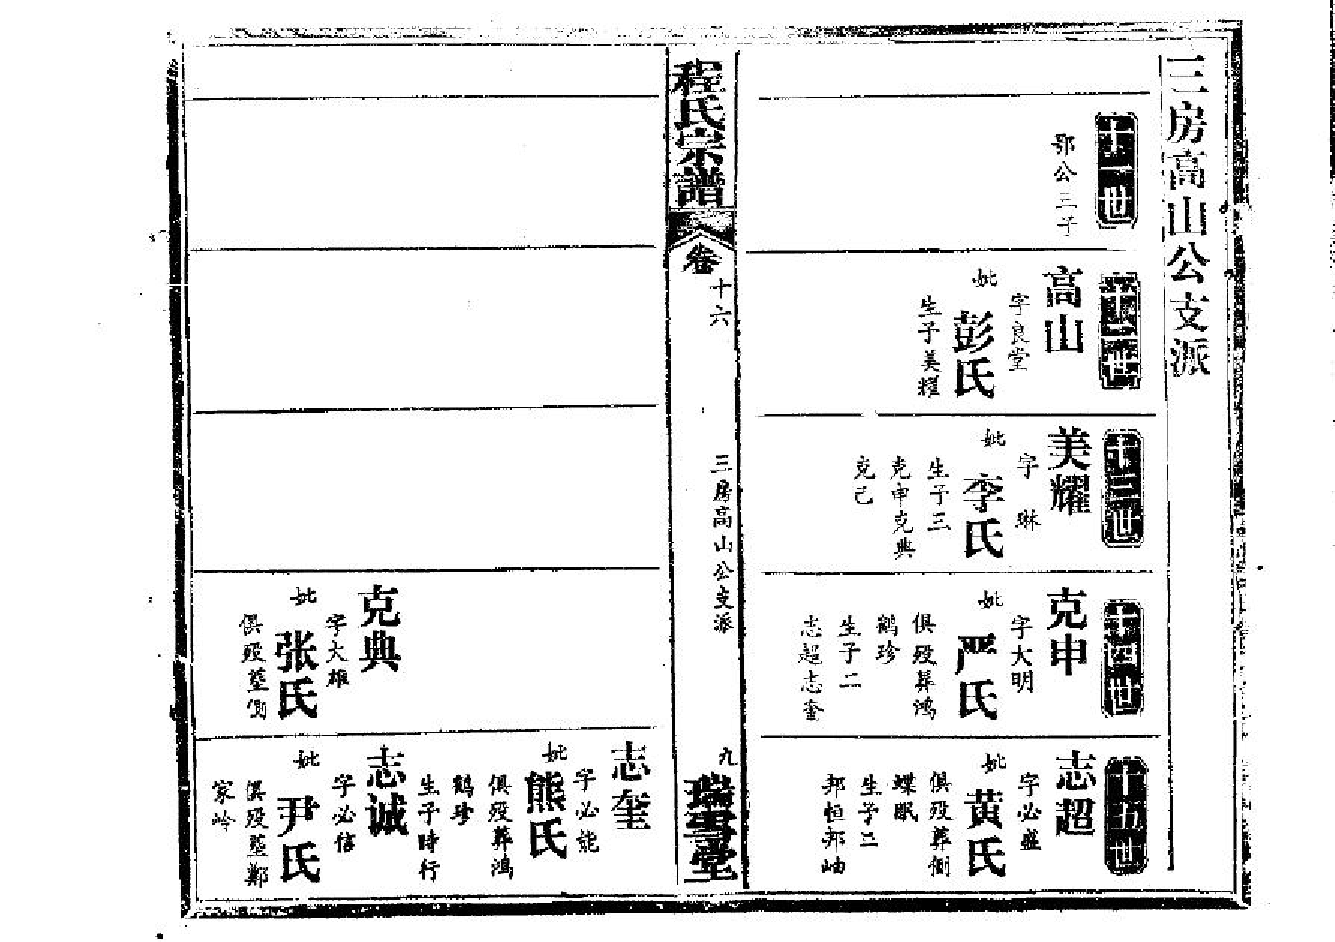 三房高山公支派
十一世
鄂公三子
十二世
高山
字良堂
妣彭氏
生子美耀
十三世
美耀
字琳
妣李氏
生子三
克申克典
克己
十四世
克申
字大明
妣严氏
俱殁葬鸿
鹤珍
生子二
志超志奎
十五世
志超
字必盛
妣黄氏
俱殁葬側
蝶眠
生子二
邦恒邦岫
程氏宗譜
卷十六
三房高山公支派
九
瑞雪堂
克典
字大雄
妣张氏
俱殁塟側
志奎
字必能
妣熊氏
俱殁葬鸿
鹤珍
生子時行
志诚
字必信
妣尹氏
俱殁塟鄭
家岭